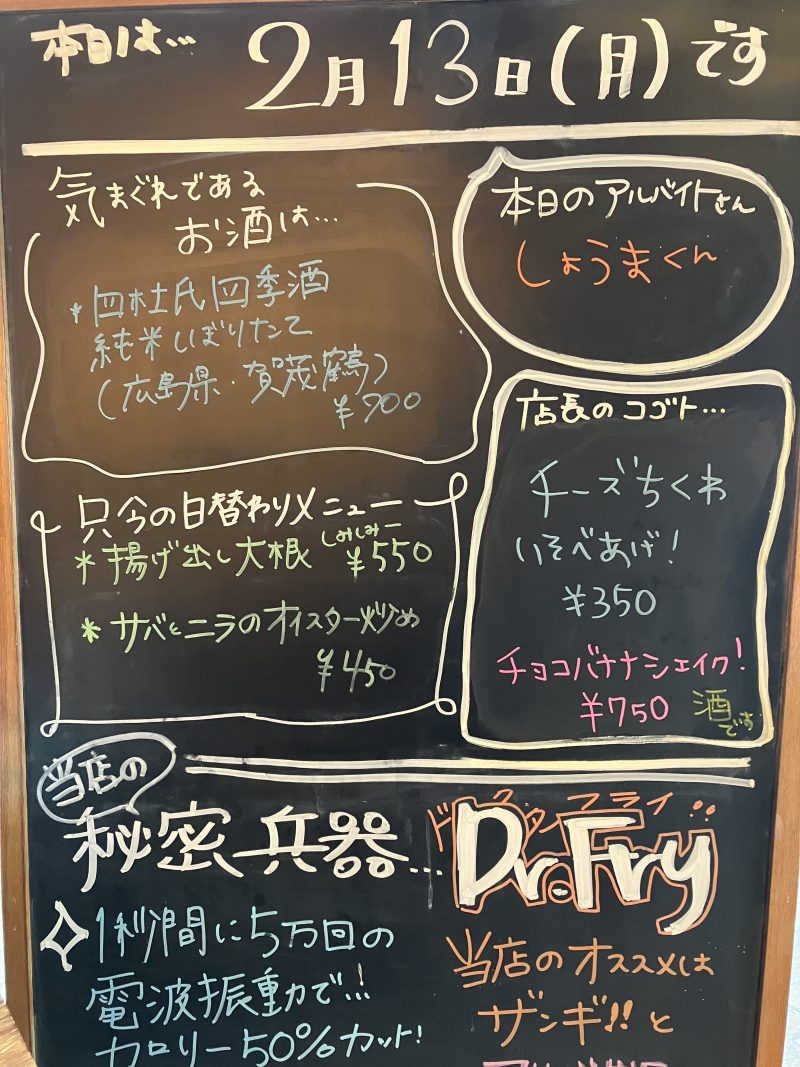 本日は…
2月13日(月)です
気まぐれである
お酒は…
*四杜氏四季酒
純米しぼりたて
(広島県・賀茂鶴)
¥700
本日のアルバイトさん
しょうまくん
店長のコゴト…
チーズちくわ
いそべあげ!
¥350
チョコバナナシェイク!
¥750 酒です
只今の日替わりメニュー
*揚げ出し大根 しみしみー
¥550
*サバとニラのオイスター炒め
¥450
当店の
秘密兵器…
ドクターフライ!!
Dr.Fry
1秒間に5万回の
電波振動で!!
カロリー50%カット!
当店のオススメは
ザンギ!!と